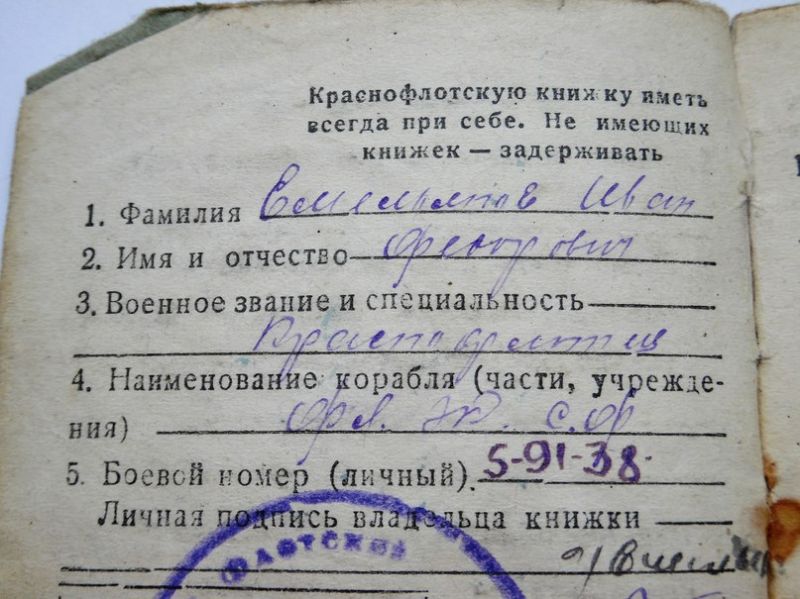 Краснофлотскую книжку иметь
всегда при себе. Не имеющих
книжек — задерживать
1. Фамилия Емельянов Иван
2. Имя и отчество Федорович
3. Военное звание и специальность
Краснофлотец
4. Наименование корабля (части, учрежде-
ния) фл. эк. С.Ф
5. Боевой номер (личный) 5-91-38.
Личная подпись владельца книжки
Флотский